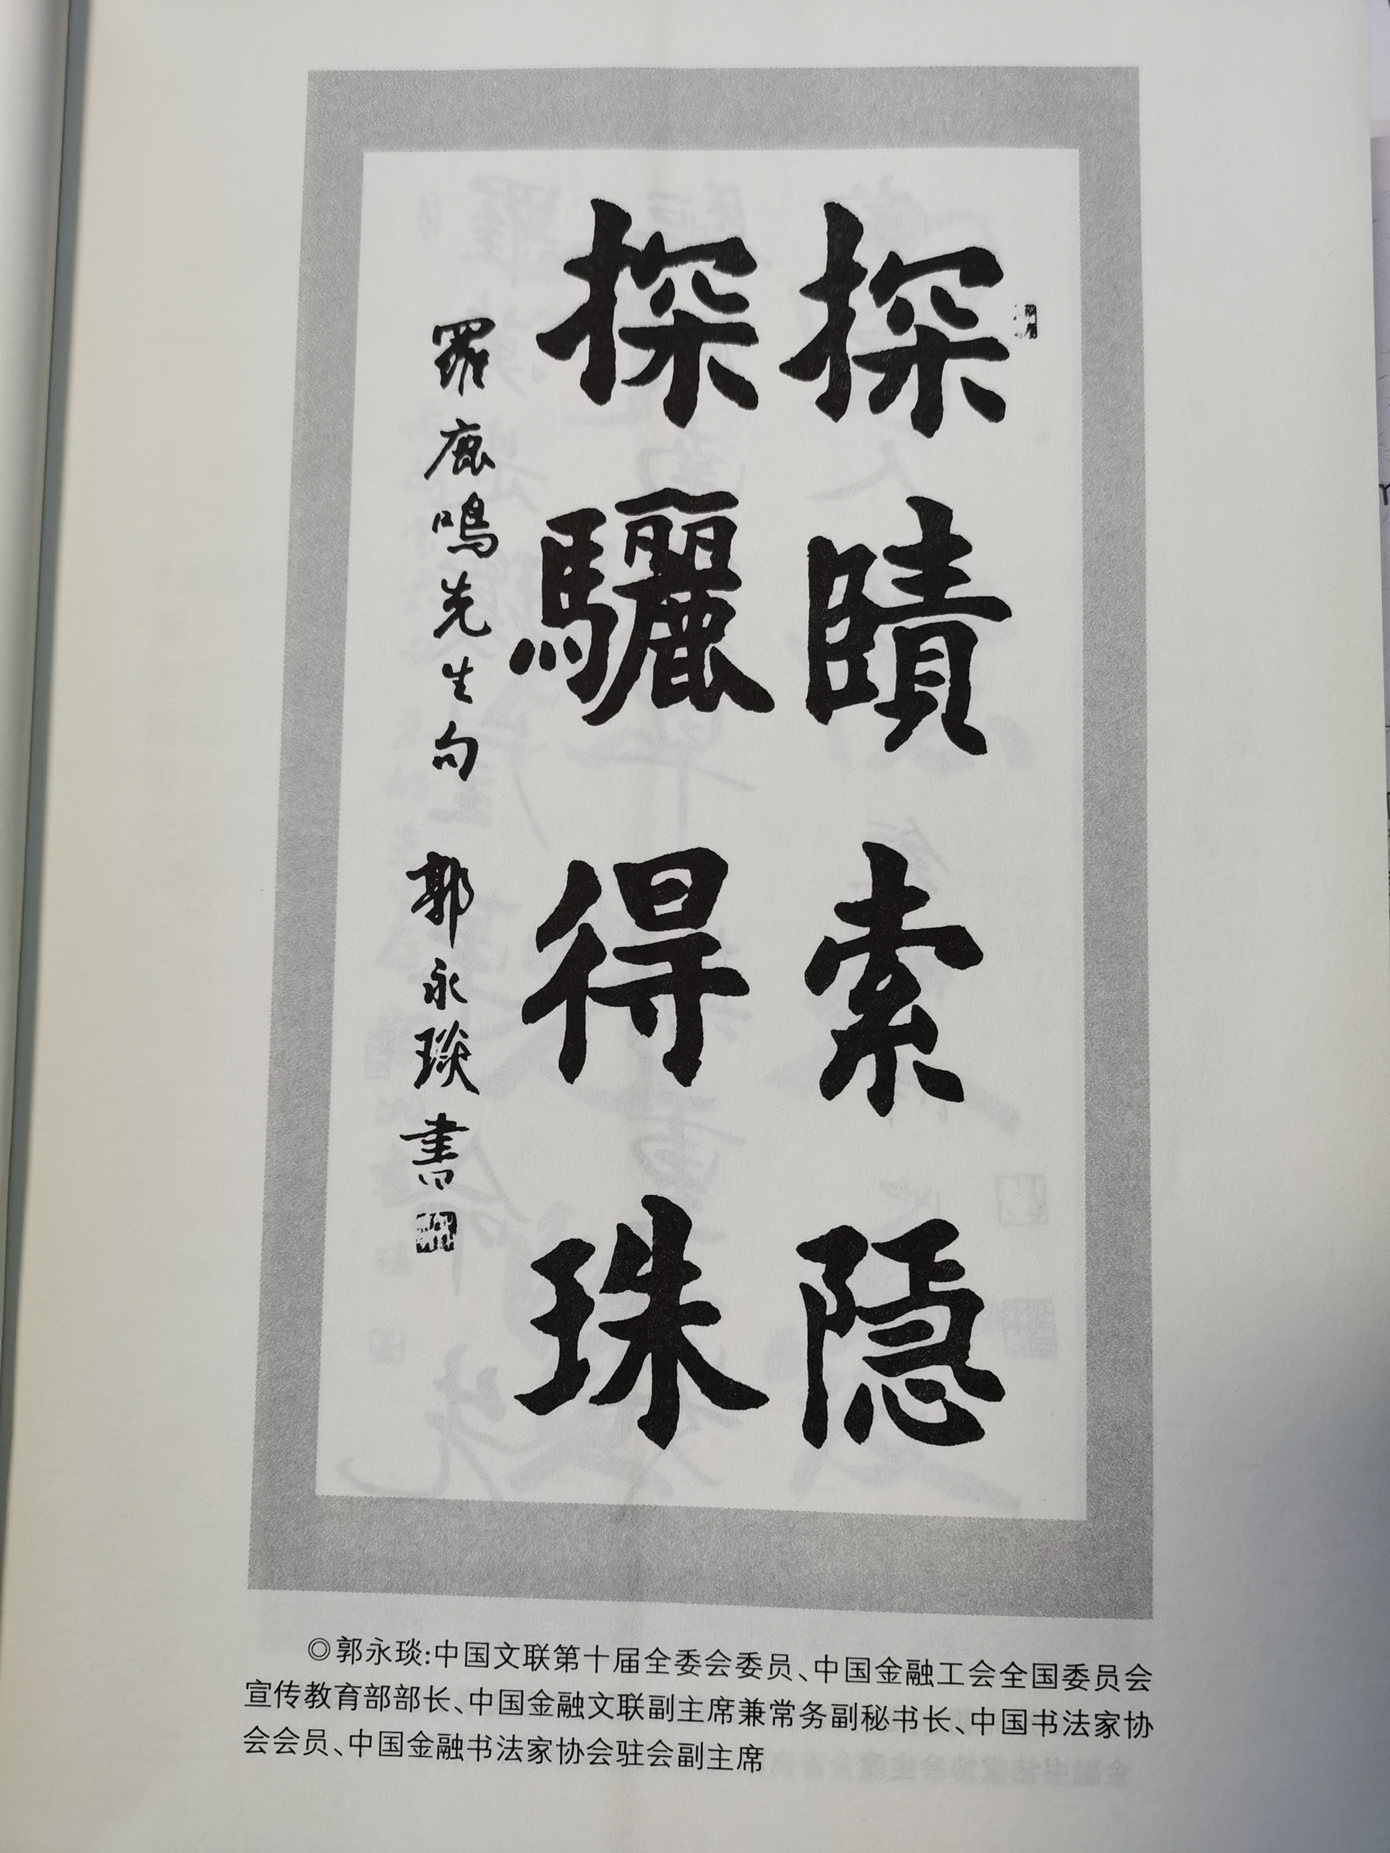 探賾索隠
探驪得珠
羅鹿鳴先生句 郭永琰書
◎郭永琰:中国文联第十届全委会委员、中国金融工会全国委员会
宣传教育部部长、中国金融文联副主席兼常务副秘书长、中国书法家协
会会员、中国金融书法家协会驻会副主席